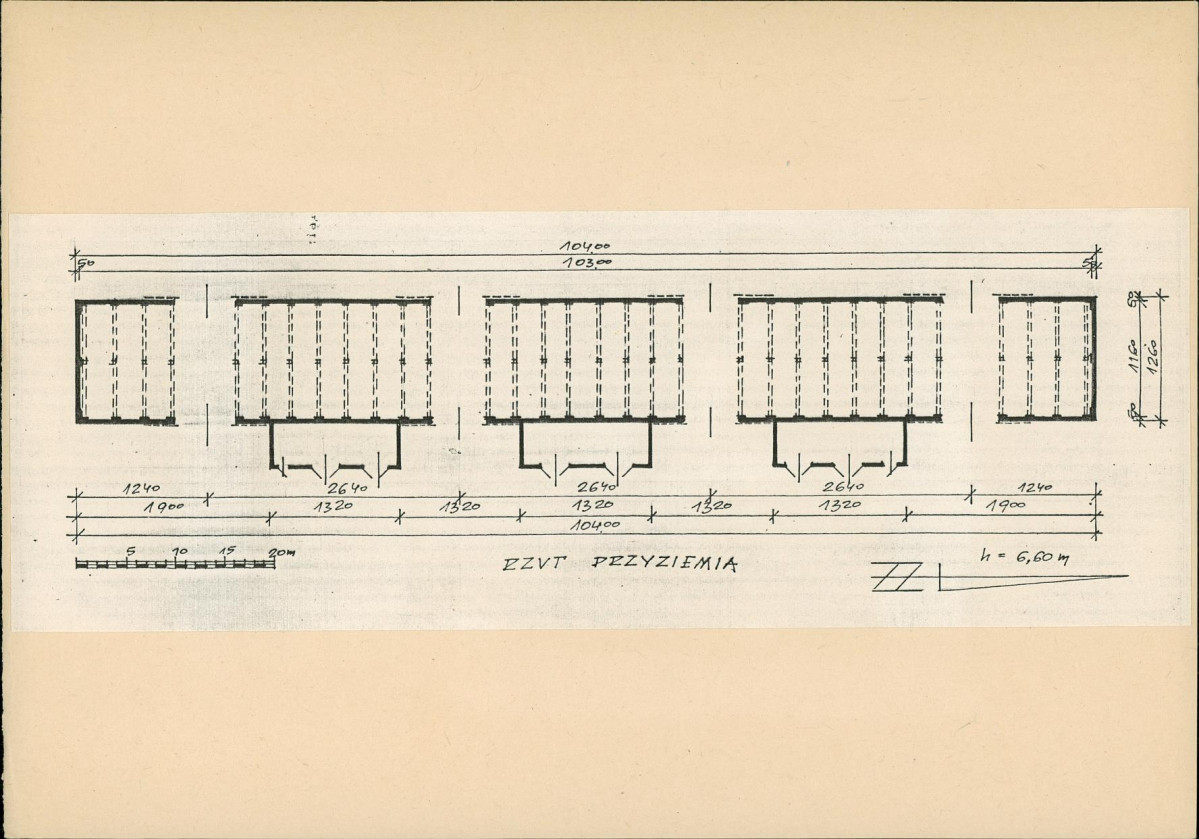 104.00
50 103.00 50
50
1160
1260
50
1240 2640 2640 2640 1240
1900 1320 1320 1320 1320 1320 1900
104.00
5 10 15 20m
RZUT PRZYZIEMIA
h = 6,60 m